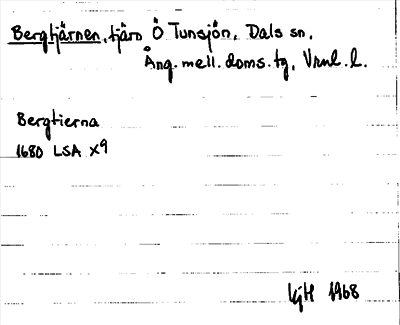 Bergtjärnen, tjärn Ö Tunsjön, Dals sn,
Ång. mell. doms. tg, Vrnl. l.
Bergtierna
1680 LSA X9
KjH 1968